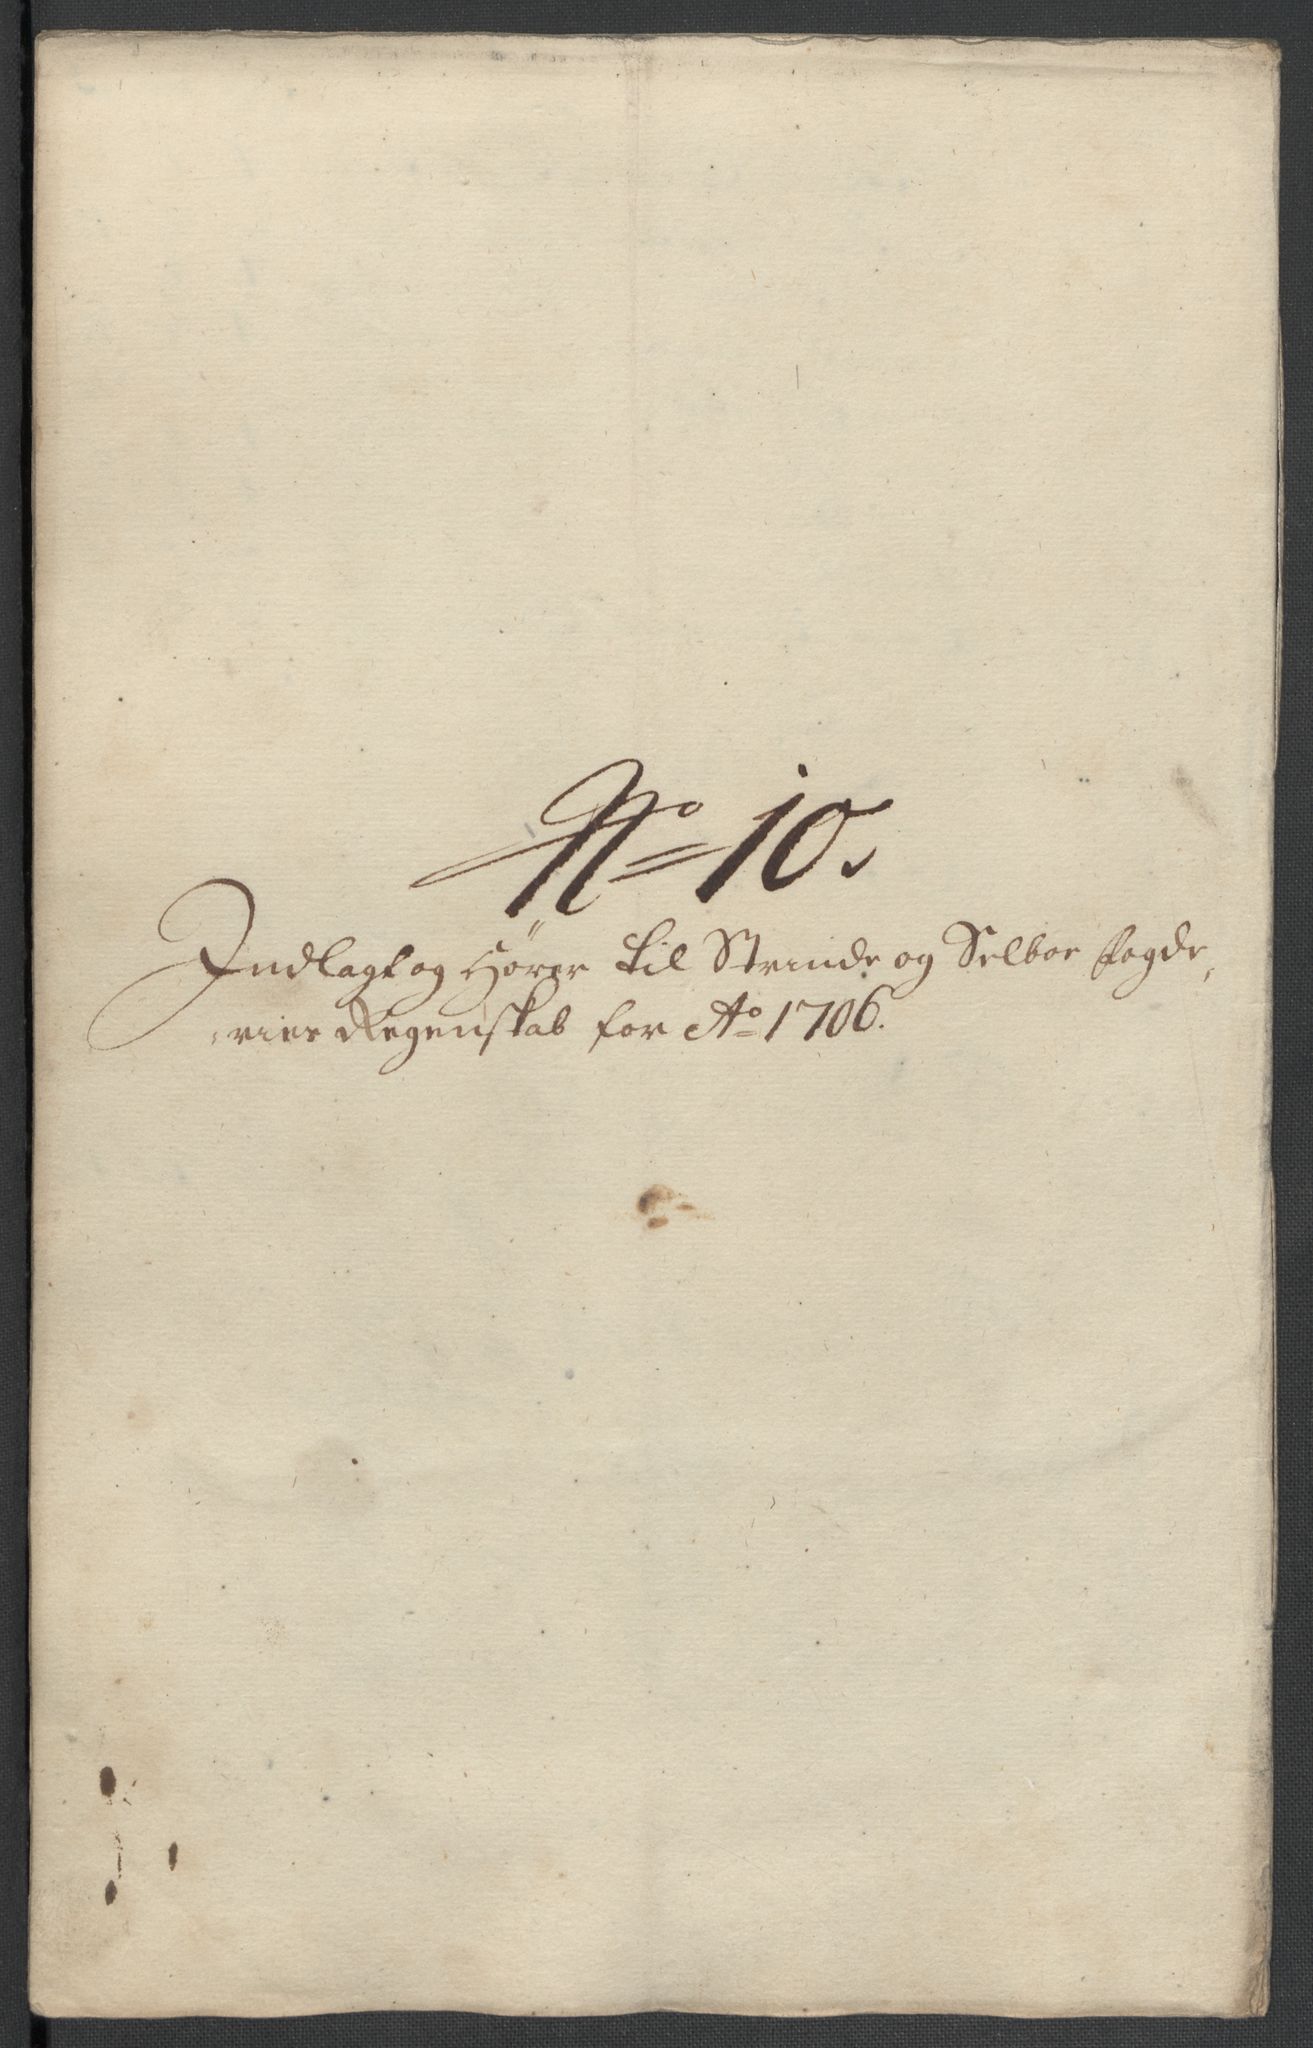 No 10.
Indlagt og Hörer til Strinde og Selboe fogde,
,ries Regenskab for Ao 1706.